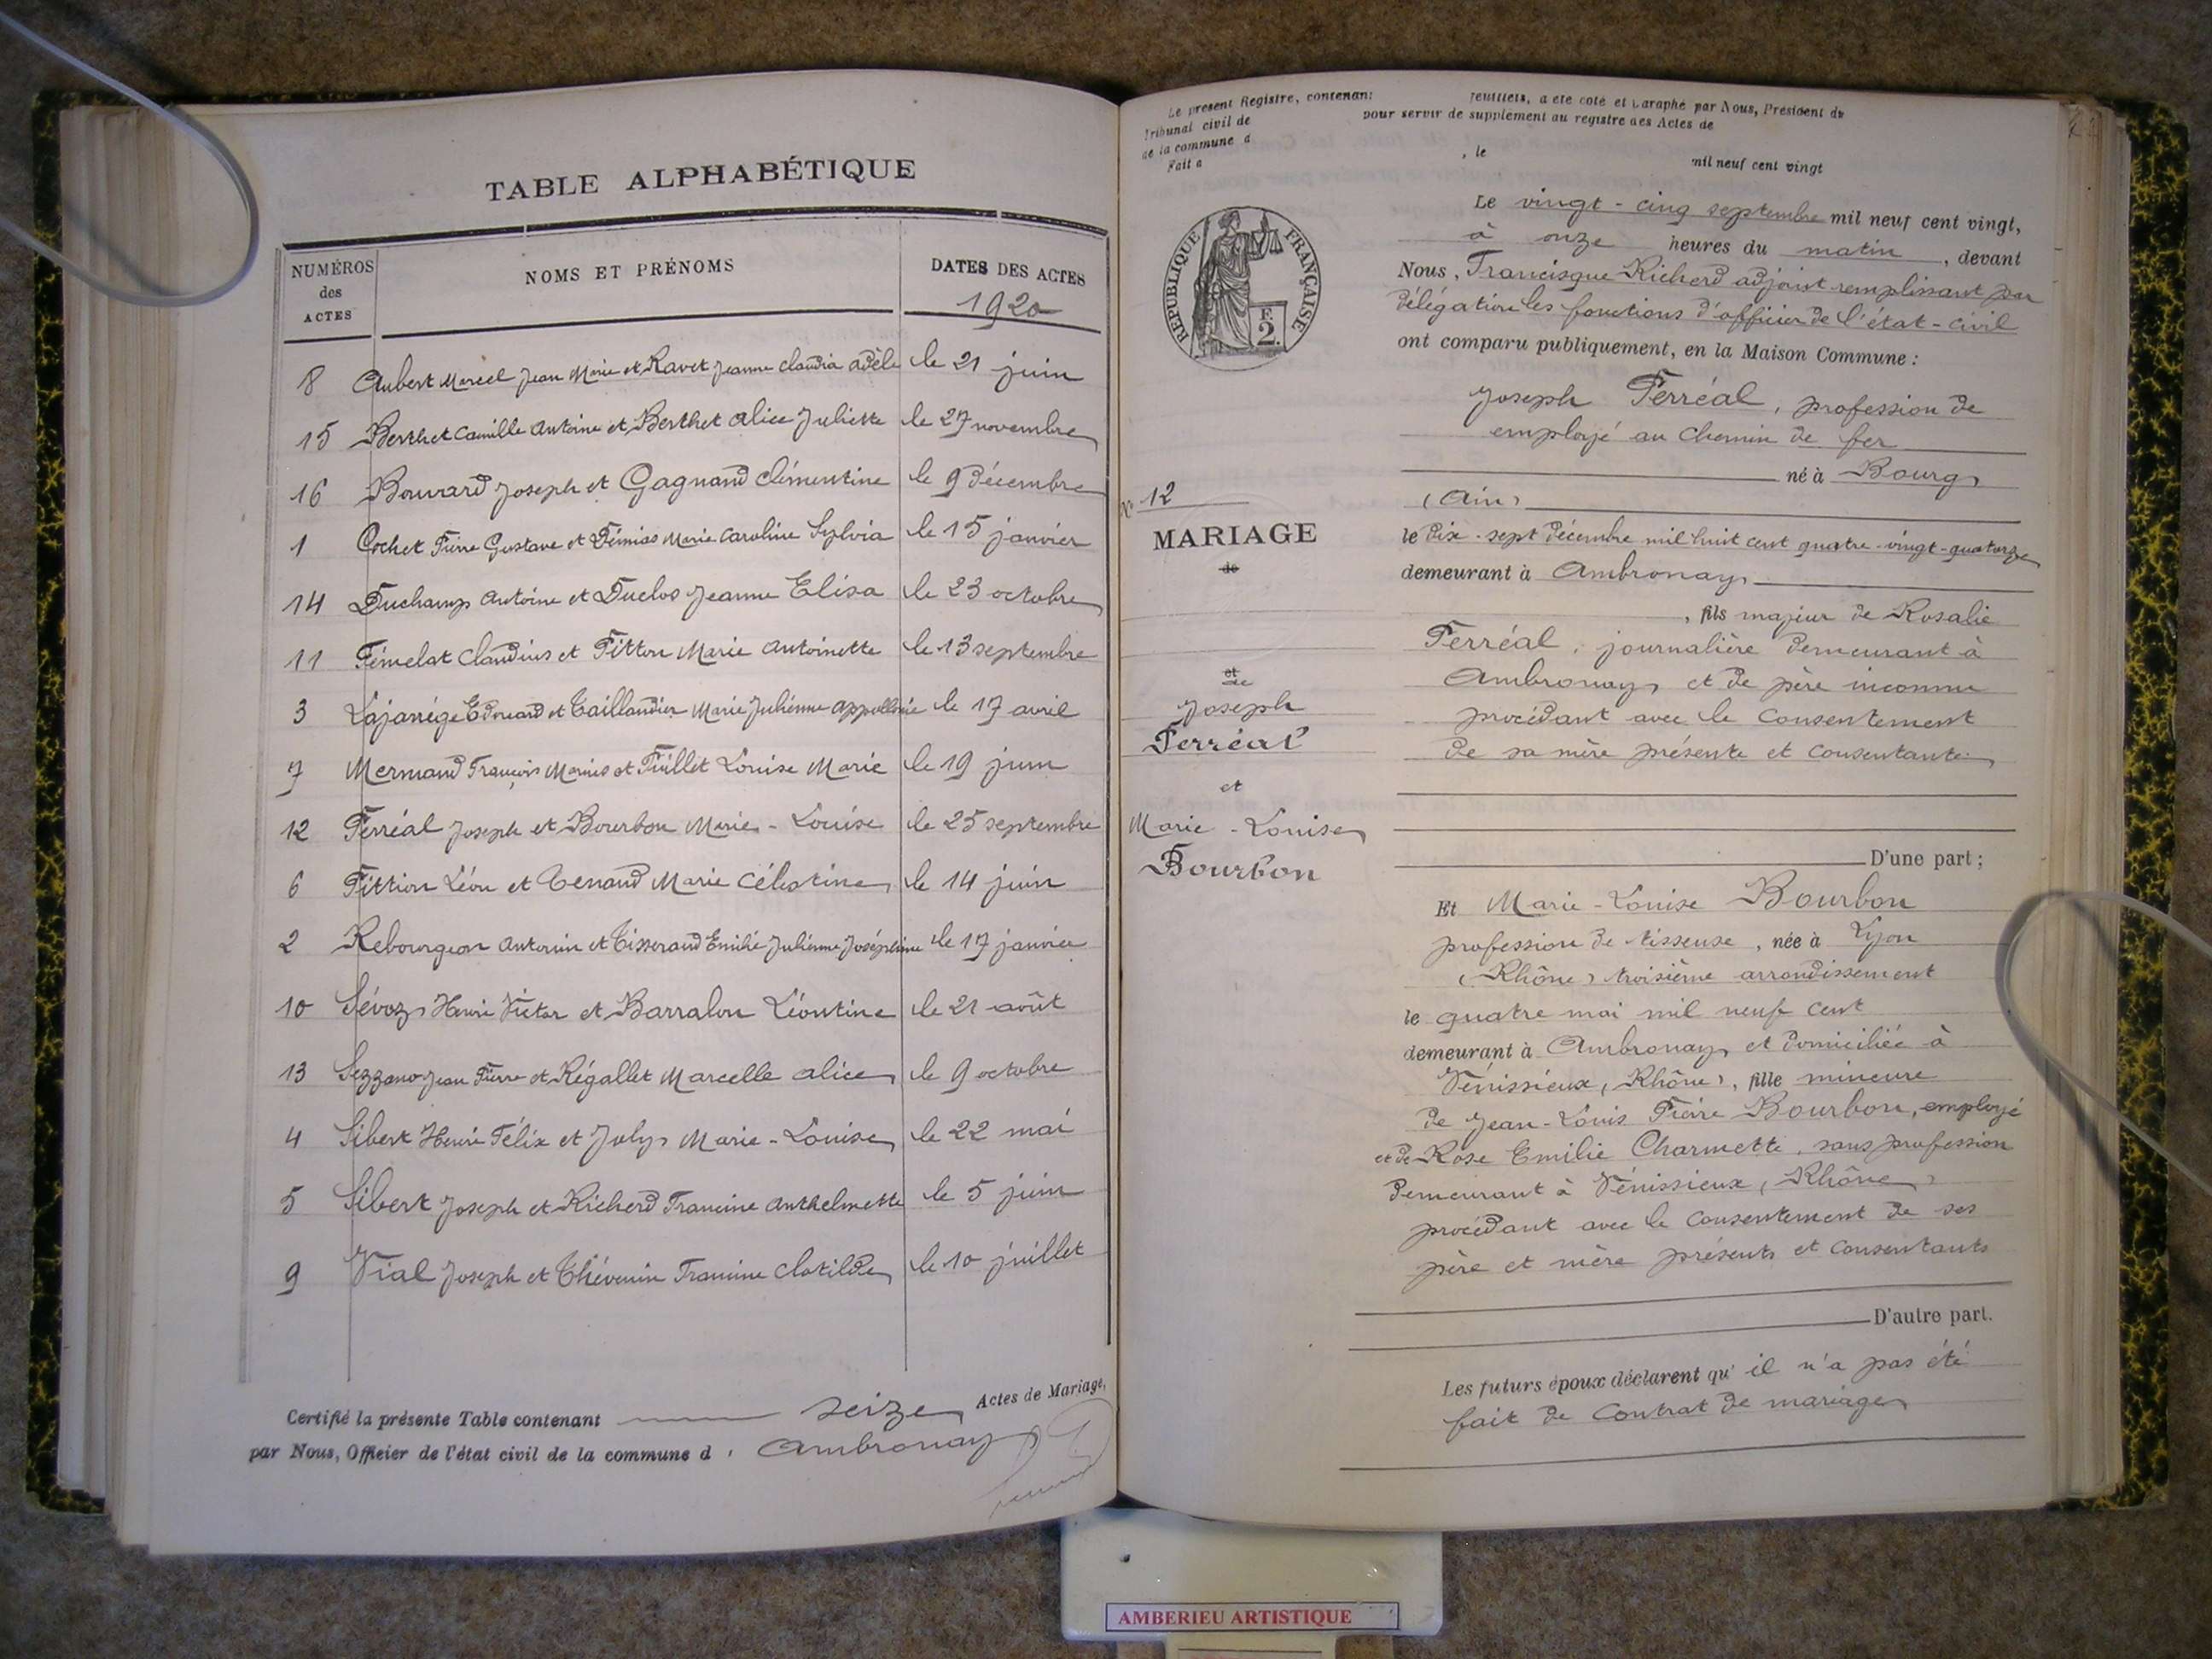 TABLE ALPHABÉTIQUE
NUMÉROS des ACTES
NOMS ET PRÉNOMS
DATES DES ACTES
1920
8 Aubert Marcel Jean Marie et Ravet Jeanne Claudia Adèle le 21 juin
15 Berthet Camille Antoine et Berthet Alice Juliette le 27 novembre
16 Bouvard Joseph et Gagnand Clémentine le 9 Décembre
1 Cochet Pierre Gustave et Démias Marie Caroline Sylvia le 15 janvier
14 Duchamp Antoine et Duclos Jeanne Elisa le 23 octobre
11 Fémelat Claudius et Pitton Marie Antoinette le 13 septembre
3 Lajarrige Edouard et Taillandier Marie Julienne Appollonie le 17 avril
7 Mermand François Marius et Tuillet Louise Marie le 19 juin
12 Perréal Joseph et Bourbon Marie-Louise le 25 septembre
6 Pittion Léon et Tenand Marie Célestine le 14 juin
2 Rebourgeon Antonin et Tisserand Emilie Julienne Joséphine le 17 janvier
10 Sévoz Henri Victor et Barralon Léontine le 21 août
13 Sezzano Jean Pierre et Régallet Marcelle Alice le 9 octobre
4 Sibert Henri Félix et Joly Marie-Louise le 22 mai
5 Sibert Joseph et Richerd Francine Anthelmette le 5 juin
9 Vial Joseph et Thévenin Francine Clotilde le 10 juillet
Certifié la présente Table contenant seize Actes de Mariage,
par Nous, Officier de l'état civil de la commune d' Ambronay
Le présent Registre, contenant feuillets, a été coté et paraphé par Nous, Président du
Tribunal civil de pour servir de supplément au registre des Actes de
de la commune d
Fait à , le mil neuf cent vingt
RÉPUBLIQUE FRANÇAISE
F. 2.
N° 12
MARIAGE
de
et
de
Joseph
Perréal
et
Marie-Louise
Bourbon
Le vingt-cinq septembre mil neuf cent vingt,
à onze heures du matin, devant
Nous, Francisque Richerd adjoint remplissant par
délégation les fonctions d'officier de l'état-civil
ont comparu publiquement, en la Maison Commune :
Joseph Perréal, profession de
employé au Chemin de fer
né à Bourg
(Ain)
le dix-sept décembre mil huit cent quatre-vingt-quatorze
demeurant à Ambronay
, fils majeur de Rosalie
Perréal, journalière demeurant à
Ambronay et de père inconnu
procédant avec le consentement
de sa mère présente et consentante
D'une part ;
Et Marie-Louise Bourbon
profession de tisseuse, née à Lyon
(Rhône) troisième arrondissement
le quatre mai mil neuf cent
demeurant à Ambronay et domiciliée à
Vénissieux (Rhône), fille mineure
de Jean-Louis Pierre Bourbon, employé
et de Rose Emilie Charmette, sans profession
demeurant à Vénissieux (Rhône)
procédant avec le consentement de ses
père et mère présents et consentants
D'autre part.
Les futurs époux déclarent qu'il n'a pas été
fait de contrat de mariage
AMBERIEU ARTISTIQUE